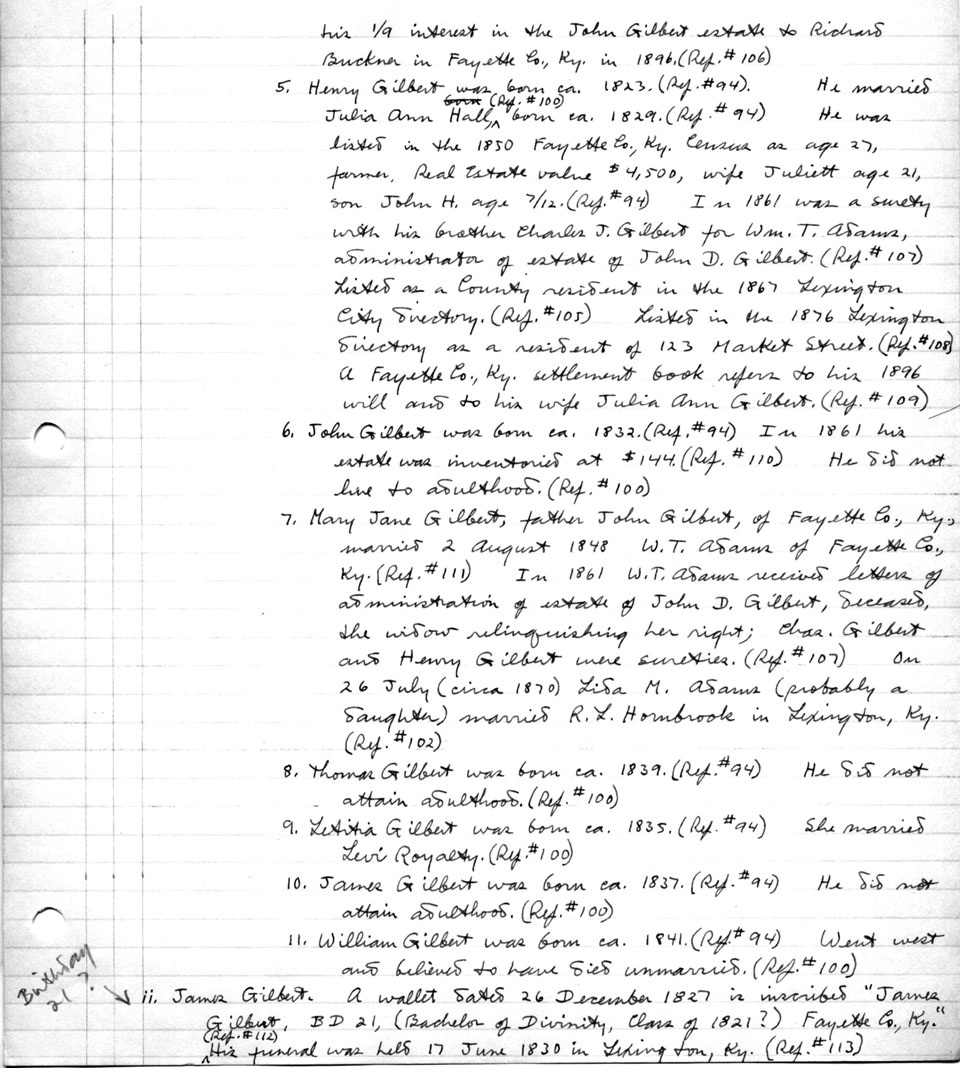 his 1/9 interest in the John Gilbert estate to Richard
Buckner in Fayette Co., Ky. in 1896. (Ref. # 106)
5. Henry Gilbert was born ca. 1823. (Ref. #94). He married
born (Ref. # 100)
Julia Ann Hall, ^ born ca. 1829. (Ref. # 94) He was
listed in the 1850 Fayette Co., Ky. Census as age 27,
farmer, Real Estate value $4,500, wife Juliett age 21,
son John H. age 7/12. (Ref. #94) In 1861 was a surety
with his brother Charles J. Gilbert for Wm. T. Adams,
administrator of estate of John D. Gilbert. (Ref. # 107)
Listed as a County resident in the 1867 Lexington
City Directory. (Ref. #105) Listed in the 1876 Lexington
Directory as a resident of 123 Market Street. (Ref. #108)
A Fayette Co., Ky. settlement book refers to his 1896
will and to his wife Julia Ann Gilbert. (Ref. # 109)
6. John Gilbert was born ca. 1832. (Ref. #94) In 1861 his
estate was inventoried at $144. (Ref. # 110) He did not
live to adulthood. (Ref. # 100)
7. Mary Jane Gilbert, father John Gilbert, of Fayette Co., Ky.,
married 2 August 1848 W.T. Adams of Fayette Co.,
Ky. (Ref. # 111) In 1861 W.T. Adams received letters of
administration of estate of John D. Gilbert, deceased,
the widow relinquishing her right; Chas. Gilbert
and Henry Gilbert were sureties. (Ref. # 107) On
26 July (circa 1870) Lida M. Adams (probably a
daughter) married R.L. Hornbrook in Lexington, Ky.
(Ref. # 102)
8. Thomas Gilbert was born ca. 1839. (Ref. #94) He did not
attain adulthood. (Ref. # 100)
9. Letitia Gilbert was born ca. 1835. (Ref. #94) She married
Levi Royalty. (Ref. # 100)
10. James Gilbert was born ca. 1837. (Ref. #94) He did not
attain adulthood. (Ref. # 100)
11. William Gilbert was born ca. 1841. (Ref # 94) Went west
and believed to have died unmarried. (Ref. # 100)
Birthday
21 ?
ii. James Gilbert. A wallet dated 26 December 1827 is inscribed "James
Gilbert, BD 21, (Bachelor of Divinity, Class of 1821?) Fayette Co., Ky."
(Ref. # 112)
^ His funeral was held 17 June 1830 in Lexington, Ky. (Ref. # 113)